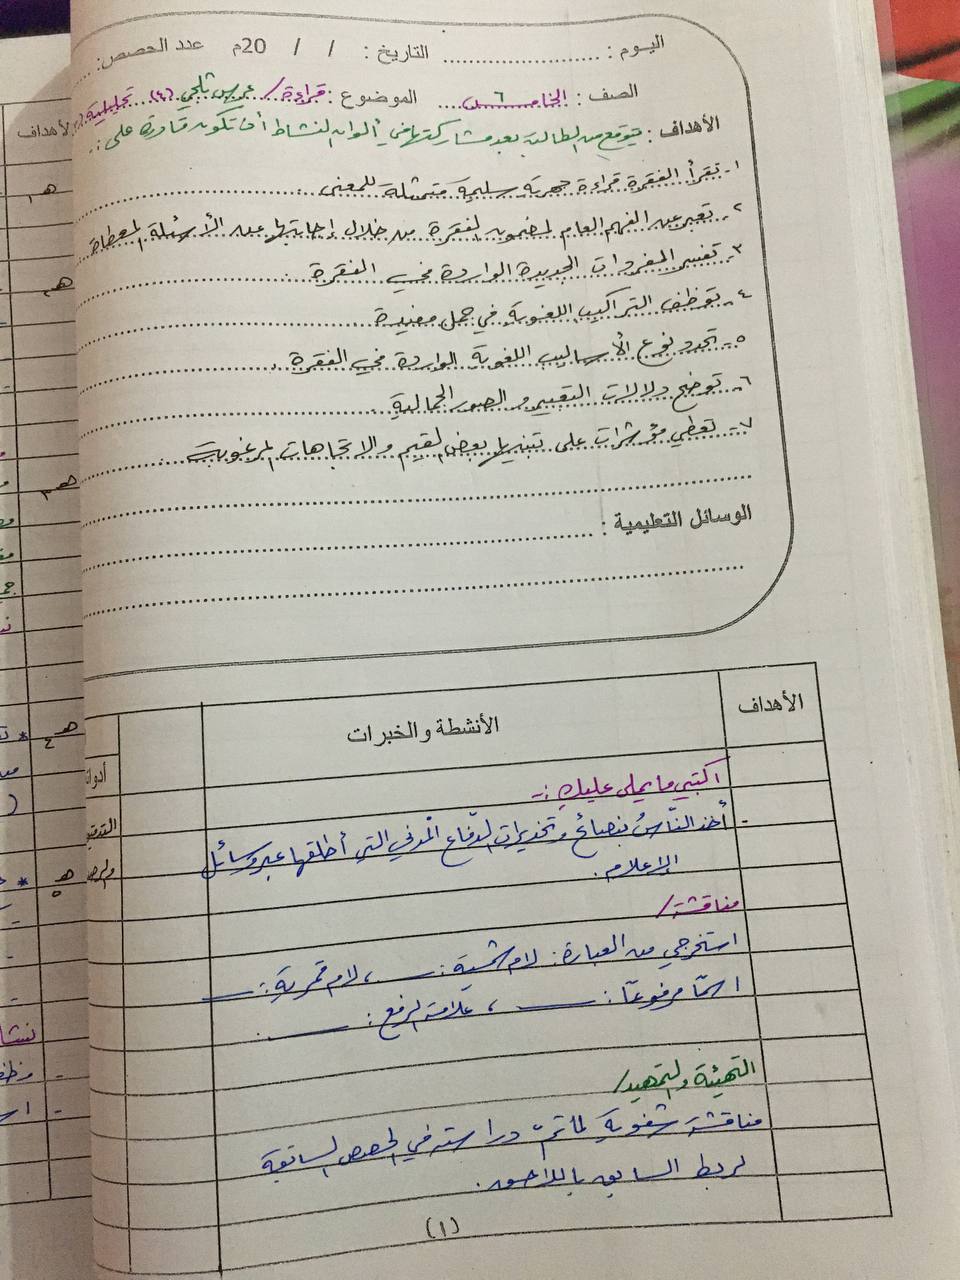 اليوم : ........................ التاريخ :    /    /    20م    عدد الحصص: ....
الصف : الخامس ٦ .... الموضوع : قراءة / عرس ثلجي (٤) تحليلية
الأهداف : يتوقع من الطالبة بعد مشاركتها في ألوان النشاط أن تكون قادرة على :-
١- تقرأ الفقرة قراءة جهرية سليمة متمثلة للمعنى .
٢- تعبر عن الفهم العام لمضمون الفقرة من خلال إجابتها عن الأسئلة المعطاة
٣- تفسر المفردات الجديدة الواردة في الفقرة .
٤- توظف التراكيب اللغوية في جمل مفيدة
٥- تحدد نوع الأساليب اللغوية الواردة في الفقرة .
٦- توضح دلالات التعبير والصور الجمالية .
٧- تعطي مؤشرات على تبنيها بعض القيم والاتجاهات المرغوبة .
الوسائل التعليمية : ........................
الأهداف    الأنشطة والخبرات
اكتبي ما يملى عليك :-
- أخذ النّاسُ بنصائح وتحذيرات الدّفاع المْدني التي أطلقها عبر وسائل
الإعلام .
مناقشة /
استخرجي من العبارة : لام شمسية : ــــ ، لام قمرية : ــــ
اسمًا مرفوعًا : ــــ ، علامة الرفع : ــــ .
التهيئة والتمهيد /
مناقشة شفوية لما تم دراسته في الحصص السابقة
لربط السابق باللاحق .
(١)
الأهداف
هـ
هـ
هـ
هـ ٤
هـ ٥